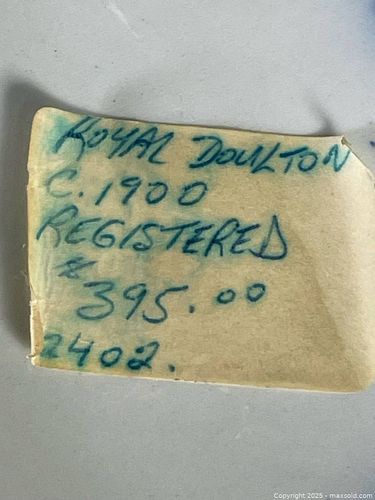 ROYAL DOULTON
C. 1900
REGISTERED
$395.00
2402.
Copyright 2025 - maxsold.com